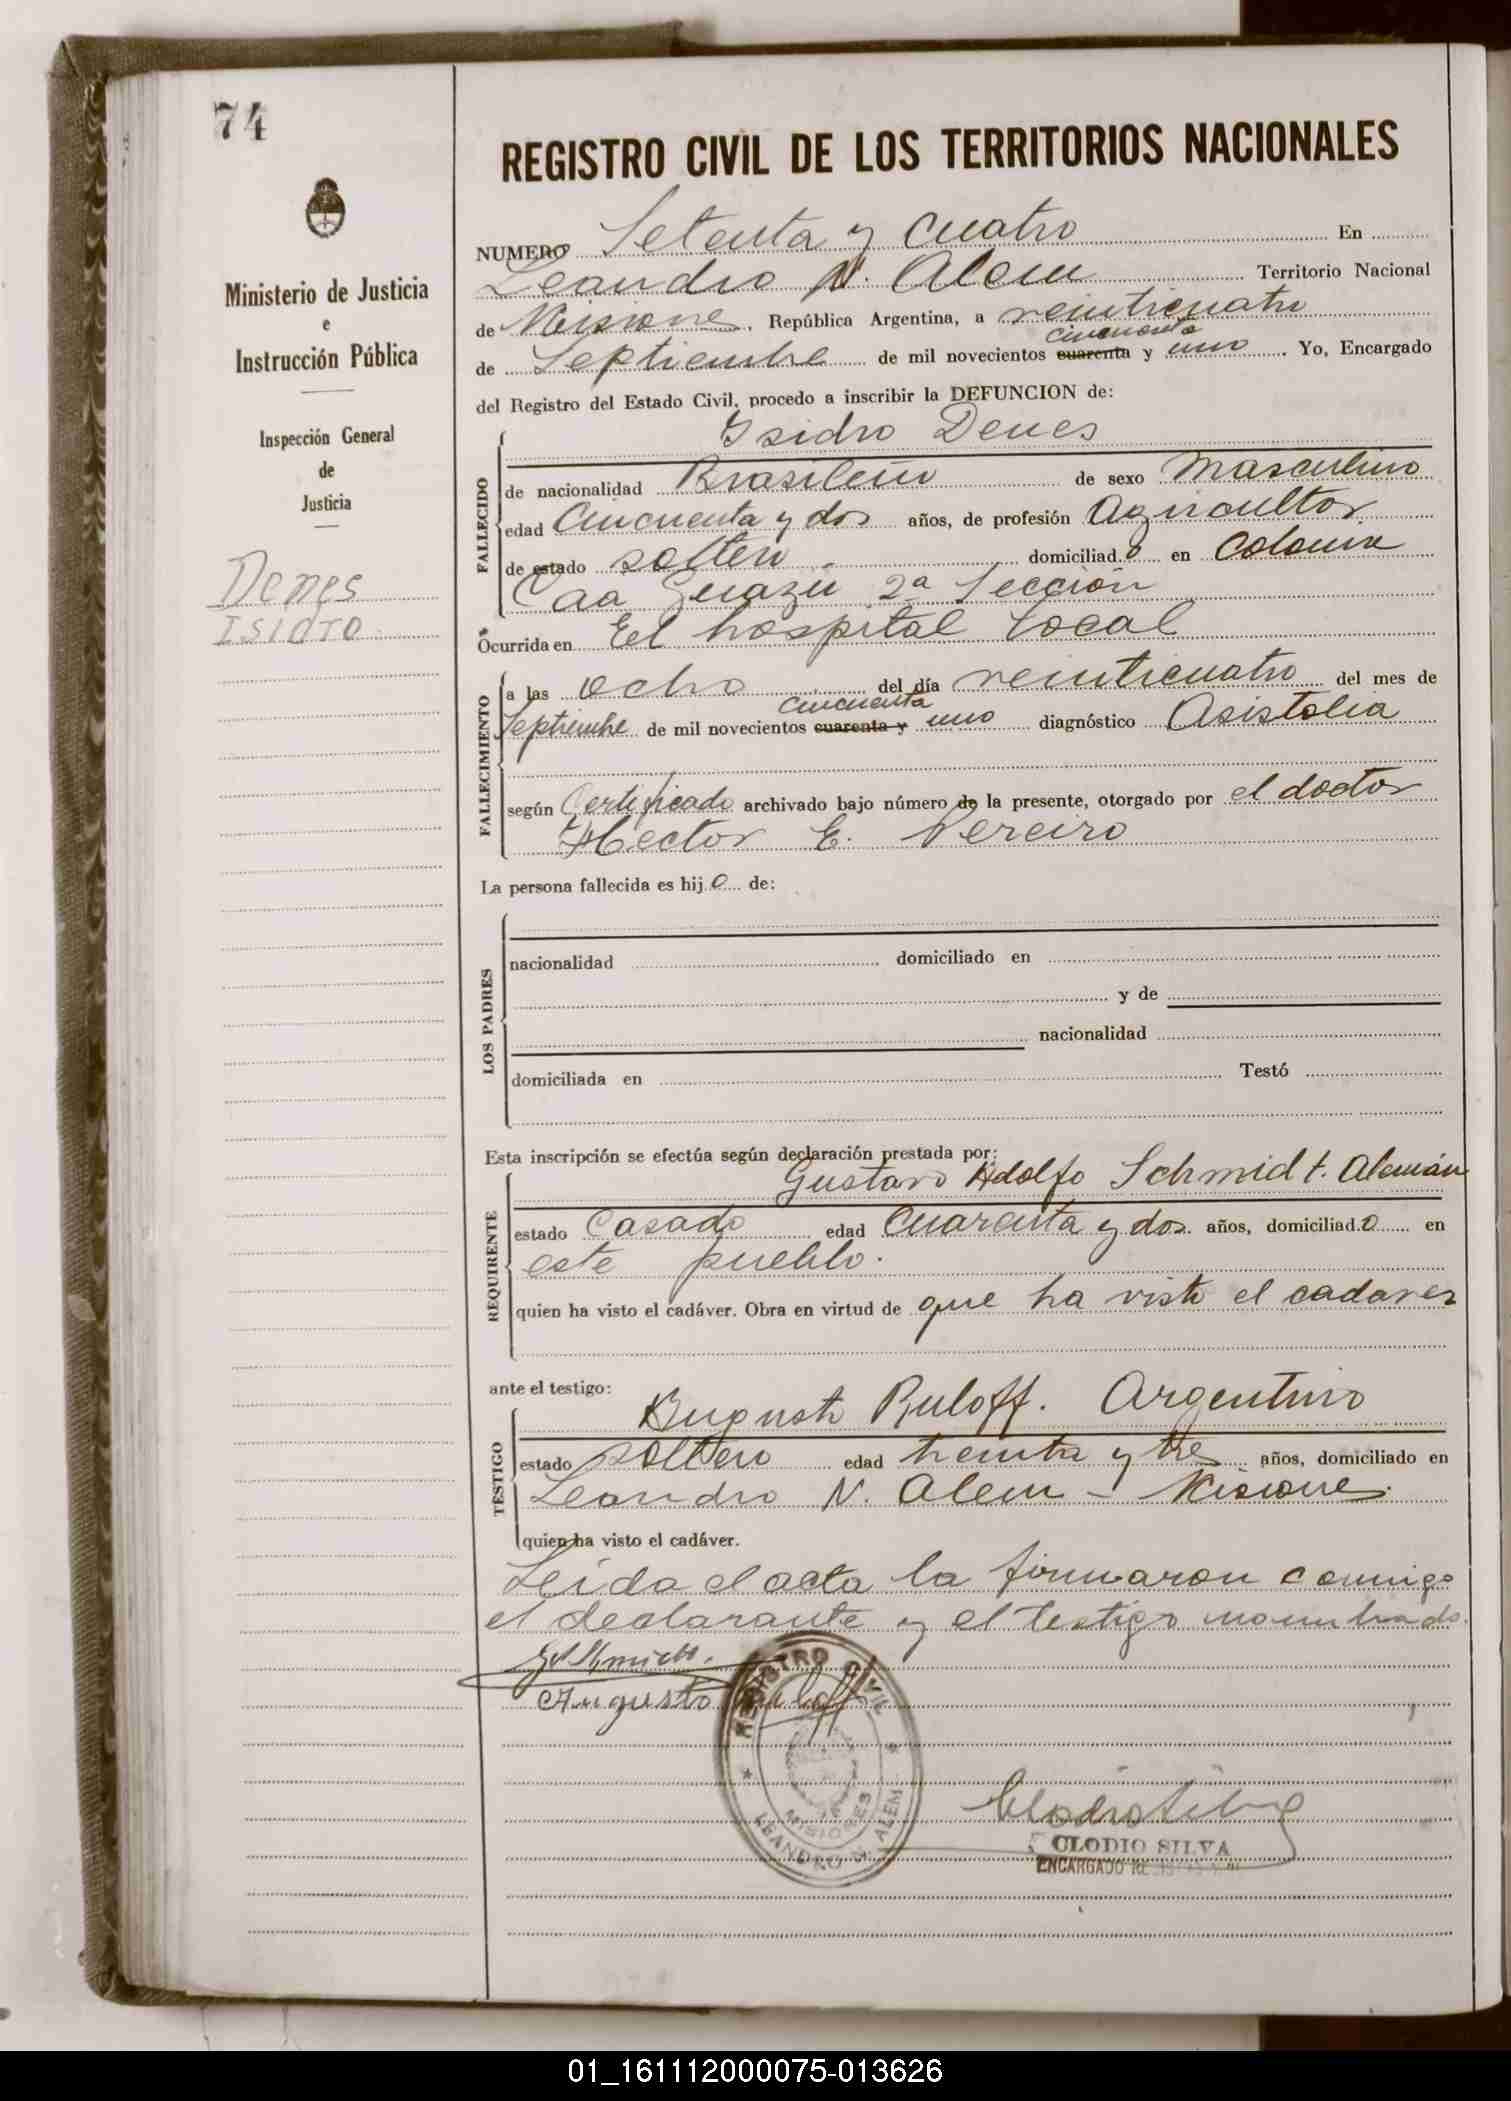 74
REGISTRO CIVIL DE LOS TERRITORIOS NACIONALES
Ministerio de Justicia
e
Instrucción Pública
Inspección General
de
Justicia
Denes
Isidro
NUMERO Setenta y cuatro En
Leandro N. Alem Territorio Nacional
de Misiones, República Argentina, a veinticuatro
cincuenta
de Septiembre de mil novecientos cuarenta y uno. Yo, Encargado
del Registro del Estado Civil, procedo a inscribir la DEFUNCION de:
FALLECIDO
Isidro Denes
de nacionalidad Brasileño de sexo Masculino
edad Cincuenta y dos años, de profesión Agricultor
de estado soltero domiciliado en Colonia
Caa Guazú 2ª Sección
Ocurrida en El hospital local
FALLECIMIENTO
a las ocho del día veinticuatro del mes de
cincuenta
Septiembre de mil novecientos cuarenta y uno diagnóstico Asistolia
según Certificado archivado bajo número de la presente, otorgado por el doctor
Hector E. Pereiro
La persona fallecida es hijo de:
LOS PADRES
nacionalidad domiciliado en
y de
nacionalidad
domiciliada en Testó
Esta inscripción se efectúa según declaración prestada por:
REQUIRENTE
Gustavo Adolfo Schmidt. Alemán
estado Casado edad Cuarenta y dos años, domiciliado en
este pueblo.
quien ha visto el cadáver. Obra en virtud de que ha visto el cadaver
ante el testigo:
TESTIGO
Augusto Ruloff. Argentino
estado soltero edad treinta y tres años, domiciliado en
Leandro N. Alem - Misiones.
quien ha visto el cadáver.
Leida el acta la firmaron conmigo
el declarante y el testigo nombrado.
Augusto Ruloff
REGISTRO CIVIL
MISIONES
LEANDRO N. ALEM
Clodio Silva
CLODIO SILVA
ENCARGADO
01_161112000075-013626